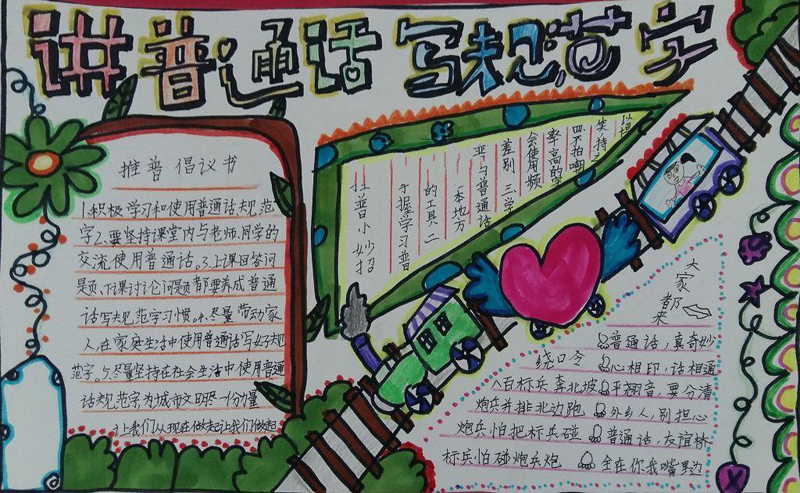 讲普通话 写规范字
推普倡议书
1.积极学习和使用普通话规范
字2.要坚持课堂内与老师,同学的
交流使用普通话。3.上课回答问
题,下课讨论问题都要养成普通
话写规范学习惯。4.尽量带动家
人,在家庭生活中使用普通话写好规
范字。5.尽量坚持在社会生活中使用普通
话规范字为城市文明尽一份力量
让我们从现在做起让我们做起
推普小妙招
于握学习普
的工具二
本地方
音与普通话
差别 三学
会使用频
率高的
四不怕嘲
笑持
大家都来
普通话,真奇妙
心相印,话相通
平翘音,要分清
外乡人,别担心
普通话,友谊桥
全在你我嘴里边
绕口令
八百标兵奔北坡
炮兵并排北边跑
炮兵怕把标兵碰
标兵怕碰炮兵炮